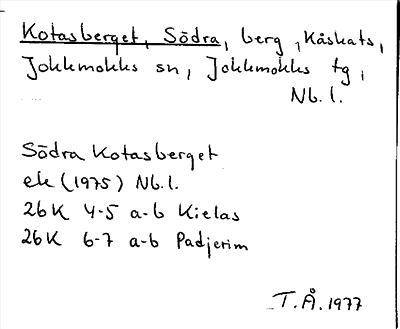 Kotasberget, Södra, berg, Kåskats,
Jokkmokks sn, Jokkmokks tg,
Nb. l.
Södra Kotasberget
ek (1975) Nb. l.
26K 4-5 a-b Kielas
26K 6-7 a-b Padjerim
T.Å. 1977